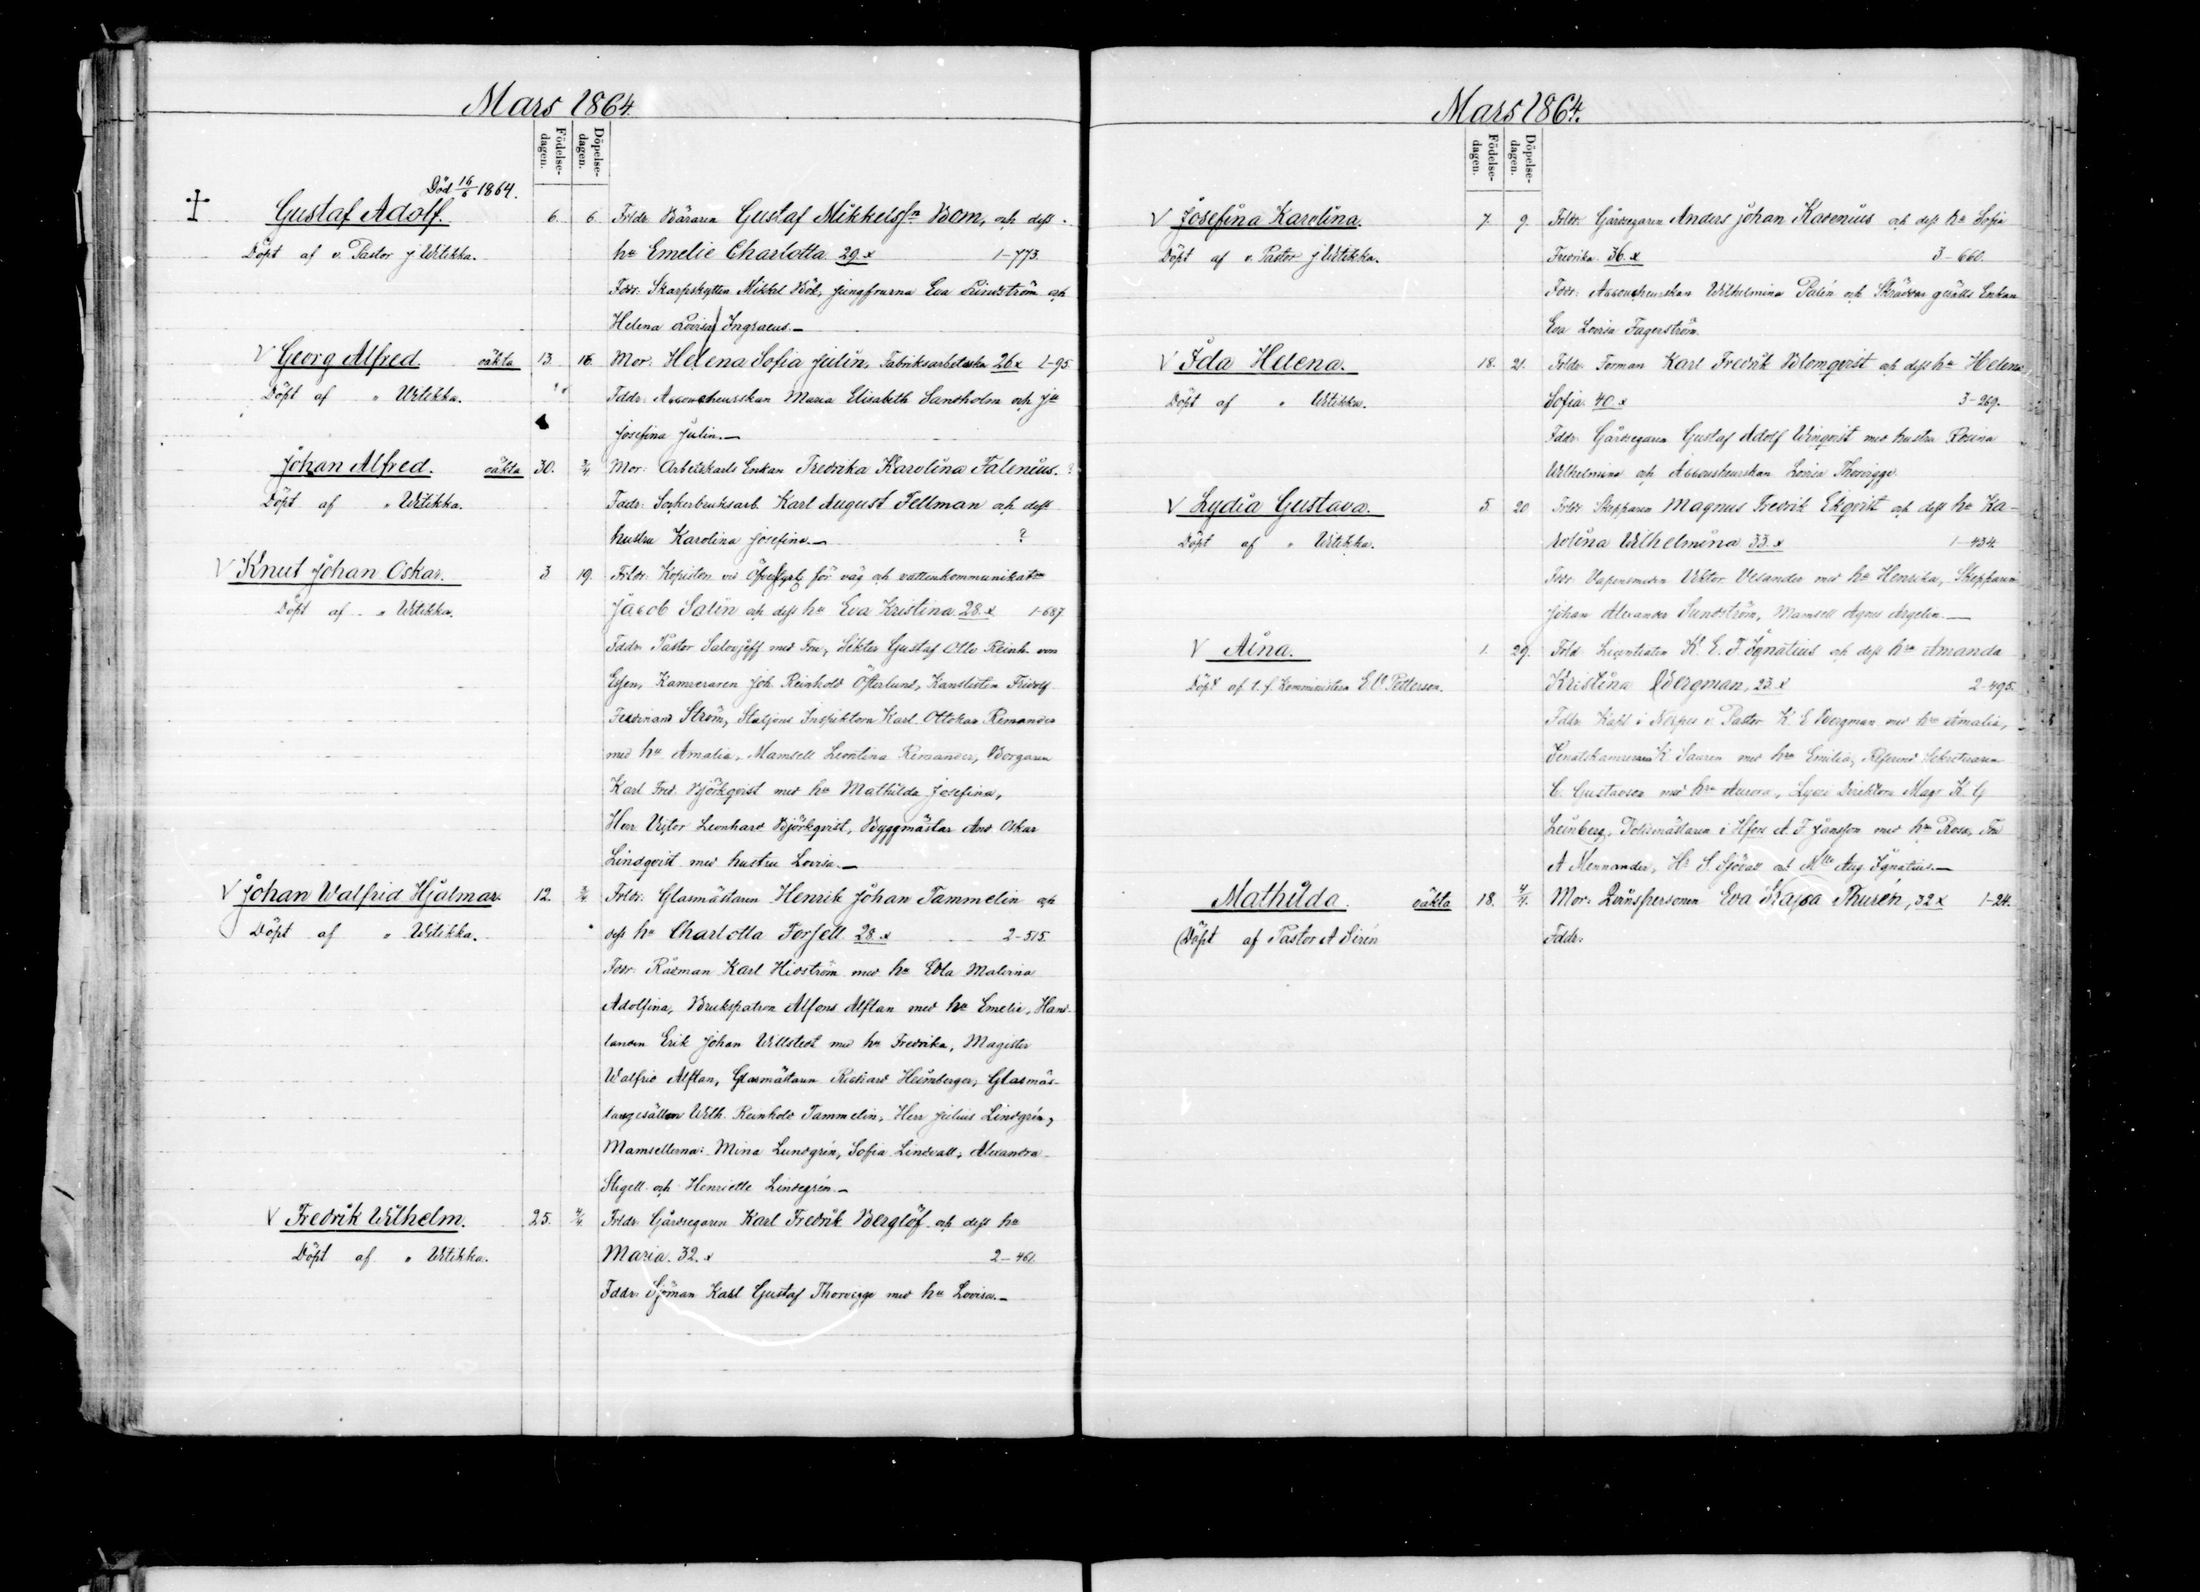 Mars 1864.
Födelse-dagen.
Döpelse-dagen.
Död 16/6 1864.
Gustaf Adolf. 6. 6. Frldr. Bäraren Gustaf Mikkelsn Bom, och dess
Döpt af v. Pastor J Witikka. hu Emelie Charlotta 29.x 1-773.
Fddr. Skarpskytten Mikkel Bök, jungfrurna Eva Lindström och
Helena Lovisa Ingraeus.—
V Georg Alfred. oäkta 13. 16. Mor: Helena Sofia Julin, Fabriksarbeterska 26x 1-95
Döpt af " Witikka. Fddr: Accoucheurskan Maria Elisabeth Sandholm och Jfr
Josefina Julin.—
Johan Alfred. oäkta 30. 3/4 Mor: Arbetskarls Enkan Fredrika Karolina Falenius. ?
Döpt af " Witikka. Fddr: Sockerbruksarb. Karl August Fellman och dess
hustru Karolina Josefina.— ?
V Knut Johan Oskar. 3 19. Frldr: Kopisten vid Öfverstyrls för väg och vattenkommunikatn
Döpt af " Witikka. Jacob Salin och dess hu Eva Kristina 28.x 1-687
Fddr. Pastor Salovjeff med Fru, Sekter Gustaf Otto Reinh. von
Essen, Kamreraren Joh Reinhold Österlund, Kanslisten Fridolf
Ferdinand Ström, Stations Inspektorn Karl Ottokar Rimander
med hu Amalia, Mamsell Leontina Rimander, Borgaren
Karl Fred. Björkqvist med hu Mathilda Josefina,
Herr Victor Leonhard Björkqvist, Byggmästar And Oskar
Lindqvist med hustru Lovisa.—
V Johan Walfrid Hjalmar. 12. 3/4 Frldr: Glasmästaren Henrik Johan Tammelin och
Döpt af " Witikka. dess hu Charlotta Forsell 28.x 2-515.
Fddr: Rådman Karl Hidström med hu Edla Malvina
Adolfina, Brukspatron Alfons Alftan med hu Emelie, Hand-
landen Erik Johan Willstedt med hu Fredrika, Magister
Walfrid Alftan, Glasmästaren Richard Heimberger, Glasmäs-
taregesällen Wilh. Reinhold Tammelin, Herr Julius Lindgrén,
Mamsellerna: Mina Lundgrén, Sofia Lindvall, Alexandra
Stigell och Henriette Lindegrén.—
V Fredrik Wilhelm. 25. 4/4 Frldr. Gårdsegaren Karl Fredrik Berglöf och dess hu
Döpt af " Witikka. Maria. 32.x 2-461
Fddr: Sjöman Karl Gustaf Thorvigge med hu Lovisa.—
Mars 1864.
Födelse-dagen.
Döpelse-dagen.
V Josefina Karolina. 7. 9. Frldr. Gårdsegaren Anders Johan Karenius och dess hu Sofia
Döpt af v. Pastor J Witikka. Fredrika 36.x 3-660.
Fddr: Accoucheurskan Wilhelmina Palén och Skräddar gesälls Enkan
Eva Lovisa Fagerström.
V Ida Helena. 18. 21. Frldr. Forman Karl Fredrik Blomqvist och dess hu Helena
Döpt af " Witikka. Sofia 40.x 3-269.
Fddr: Gårdsegaren Gustaf Adolf Winqvist med hustru Rosina
Wilhelmina och Accoucheurskan Lovisa Thorvigge.
V Lydia Gustava. 5. 20 Frldr Skepparen Magnus Fredrik Ekqvist och dess hu Ka-
Döpt af " Witikka. rolina Wilhelmina 33.x 1-434.
Fddr Vapensmeden Viktor Velander med hu Henrika, Skepparen
Johan Alexander Sundström, Mamsell Agnes Argelin.—
V Aina. 1. 29. Frld Licentiaten K. E. F. Ignatius och dess hru Amanda
Döpt af t. f. Komministern E. V. Petterson. Kristina Bergman, 23.x 2-495.
Fddr. Kapl i Nerpes v. Pastor K. E Bergman med hru Amalia,
Senatskamreraren K Sauren med hru Emilia, Referend Sekreteraren
C. Gustavson med hru Aurora, Lycei Direktorn Magr K. G
Leinberg, Polismästaren i Hfors A. F Jansson med hru Rosa, Fru
A Mennander, Hr S. Sjövall och Mlle Aug Ignatius.—
Mathilda. oäkta 18. 4/4. Mor: Qvinspersonen Eva Kajsa Thurén, 32x 1-24.
Döpt af Pastor A Sirén Fddr: